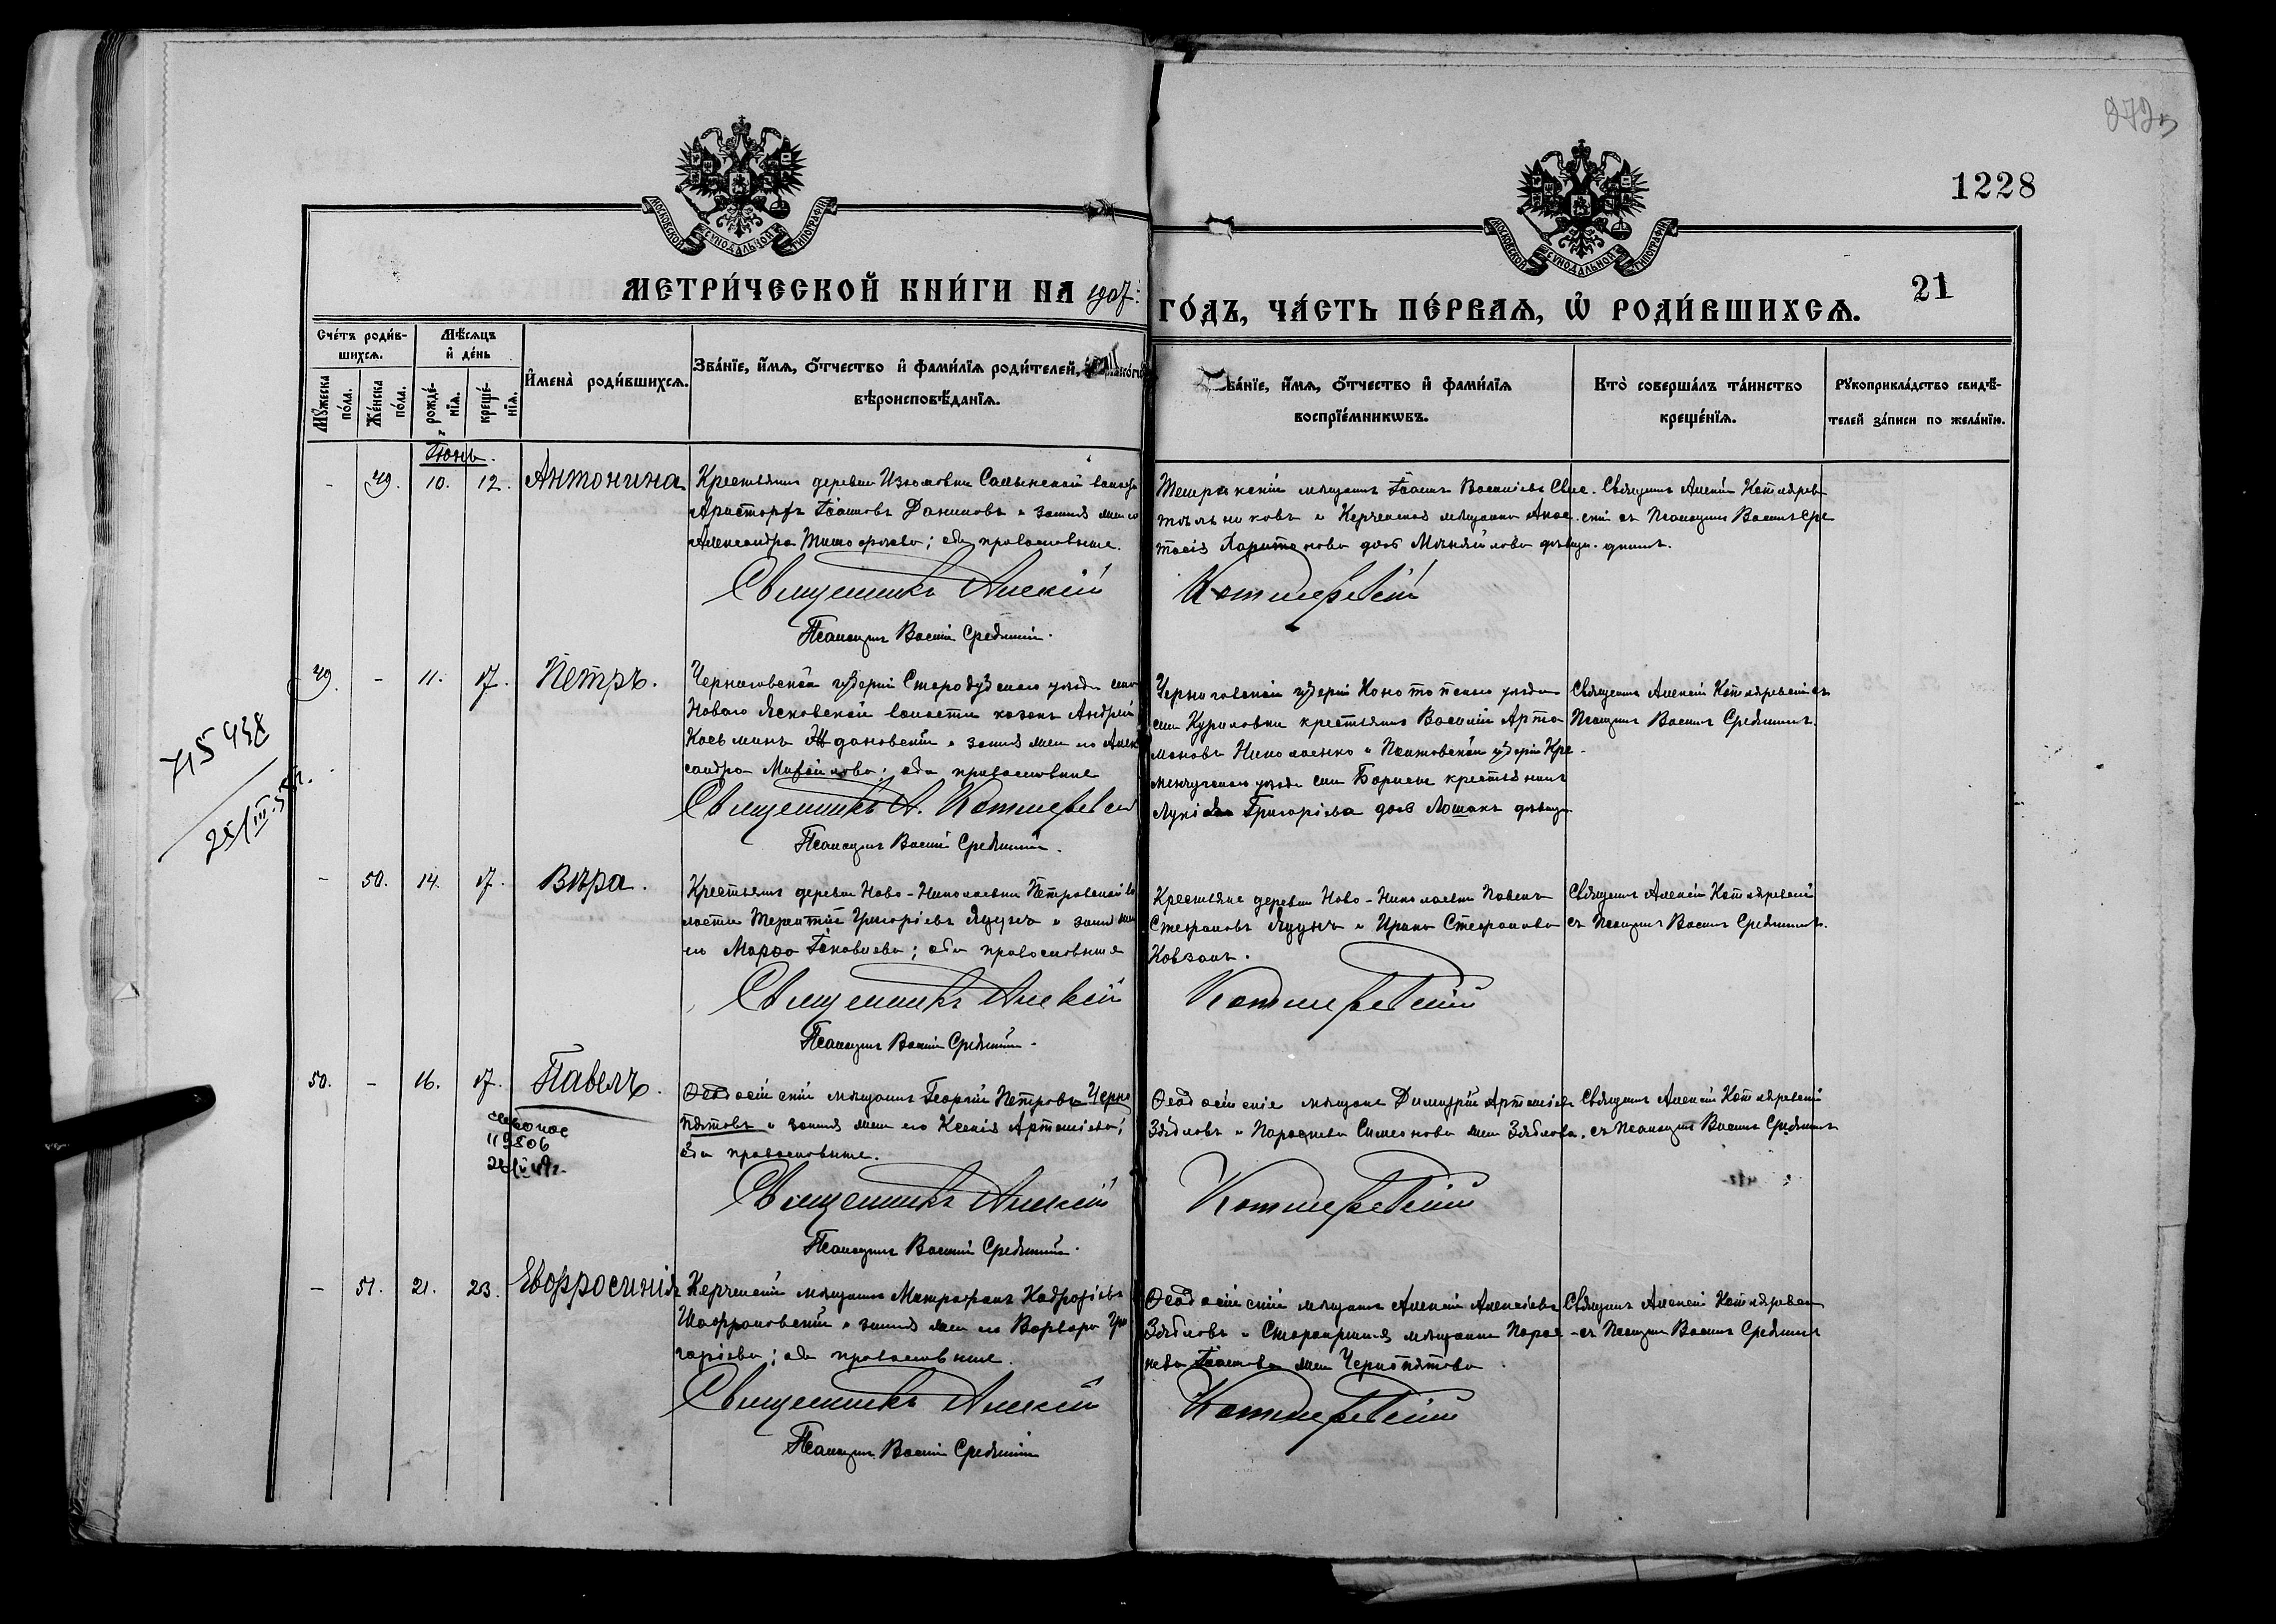 272
1228
МОСКОВСКОЙ СУНОДАЛЬНОЙ ТИПОГРАФІИ
МОСКОВСКОЙ СУНОДАЛЬНОЙ ТИПОГРАФІИ
МЕТРИ́ЧЕСКОЙ КНИ́ГИ НА 1907:
ГО́ДЪ, ЧА́СТЬ ПЕ́РВАЯ, Ѽ РОДИ́ВШИХСЯ.
21
Сче́тъ роди́в-
шихся.
Мѣ́сяцъ
и҆ де́нь
Мꙋ́жеска по́ла.
Же́нска по́ла.
рожде́-
нїя.
креще́-
нїя.
И҆мена̀ роди́вшихся.
Зва́нїе, и҆́мя, ѻ҆́тчество и҆ фами́лїя роди́телей,
вѣроисповѣ́данїя.
ва́нїе, и҆́мя, ѻ҆́тчество и҆ фами́лїя
воспрїе́мникѡвъ.
Кто̀ соверша́лъ та́инство
креще́нїя.
Рꙋкоприкла́дство свидѣ́-
телей за́писи по жела́нїю.
Іюнь.
- 49. 10. 12. Антонина
Крестьянинъ деревни Изюмовки Салынской волости
Аристархъ Іоанновъ Даниловъ и законная жена его
Александра Тимофеева; оба православные.
Священникъ Алексій
Псаломщикъ Василій Срединскій.
Темрюкскій мѣщанинъ Іоаннъ Васильевъ Свис-
тѣльниковъ и Керченская мѣщанка Анас-
тасія Харитонова дочь Михайлова дѣвица.
Котляревскій
Священникъ Алексій Котлярев-
скій съ Псаломщ. Васил. Сре-
динск.
49. - 11. 17. Петръ.
Черниговской губерніи Стародубскаго уѣзда села
Новаго Ясковской волости казакъ Андрей
Косьминъ Ждановскій и законная жена его Алек-
сандра Михайлова; оба православные
Священникъ А. Котляревскій
Псаломщикъ Василій Срединскій.
Черниговской губерніи Конотопскаго уѣзда
села Куриловки крестьянинъ Василій Арта-
моновъ Николаенко и Полтавской губерніи Кре-
менчугскаго уѣзда села Борисы крестьянина
Лукія Григорьева дочь Лошакъ дѣвица
Священникъ Алексій Котляревскій съ
Псаломщ. Васил. Средински.
715438
25/III.58г.
- 50. 14. 17. Вѣра.
Крестьянинъ деревни Ново-Николаевки Петровской во-
лости Терентій Григорьевъ Яцунъ и законная жена
его Марфа Іаковлева; оба православные
Священникъ Алексій
Псаломщикъ Василій Срединскій.
Крестьяне деревни Ново-Николаевки Павелъ
Стефановъ Яцунъ и Ирина Стефанова
Ковзанъ.
Котляревскій
Священникъ Алексій Котляревскій
съ Псаломщ. Васил. Средински.
50. - 16. 17. Павелъ.
119806
Ѳеодосійскій мѣщанинъ Георгій Петровъ Черно-
пятовъ и законная жена его Ксенія Артемьева;
оба православные.
Священникъ Алексій
Псаломщикъ Василій Срединскій.
Ѳеодосійскіе мѣщане Димитрій Артемьевъ
Зябловъ и Параскева Симеонова жена Зяблова.
Котляревскій
Священникъ Алексій Котляревскій
съ Псаломщ. Васил. Средински
- 51. 21. 23. Евфросинія
Керченскій мѣщанинъ Митрофанъ Кодратіевъ
Шафрановскій и законная жена его Варвара Гри-
горьева; оба православные.
Священникъ Алексій
Псаломщикъ Василій Срединскій
Ѳеодосійскій мѣщанинъ Алексій Алексіевъ
Зябловъ и Старокрымская мѣщанка Парас-
кева Іоаннова жена Чернопятова
Котляревскій
Священникъ Алексій Котляревск.
съ Псаломщ. Васил. Средински